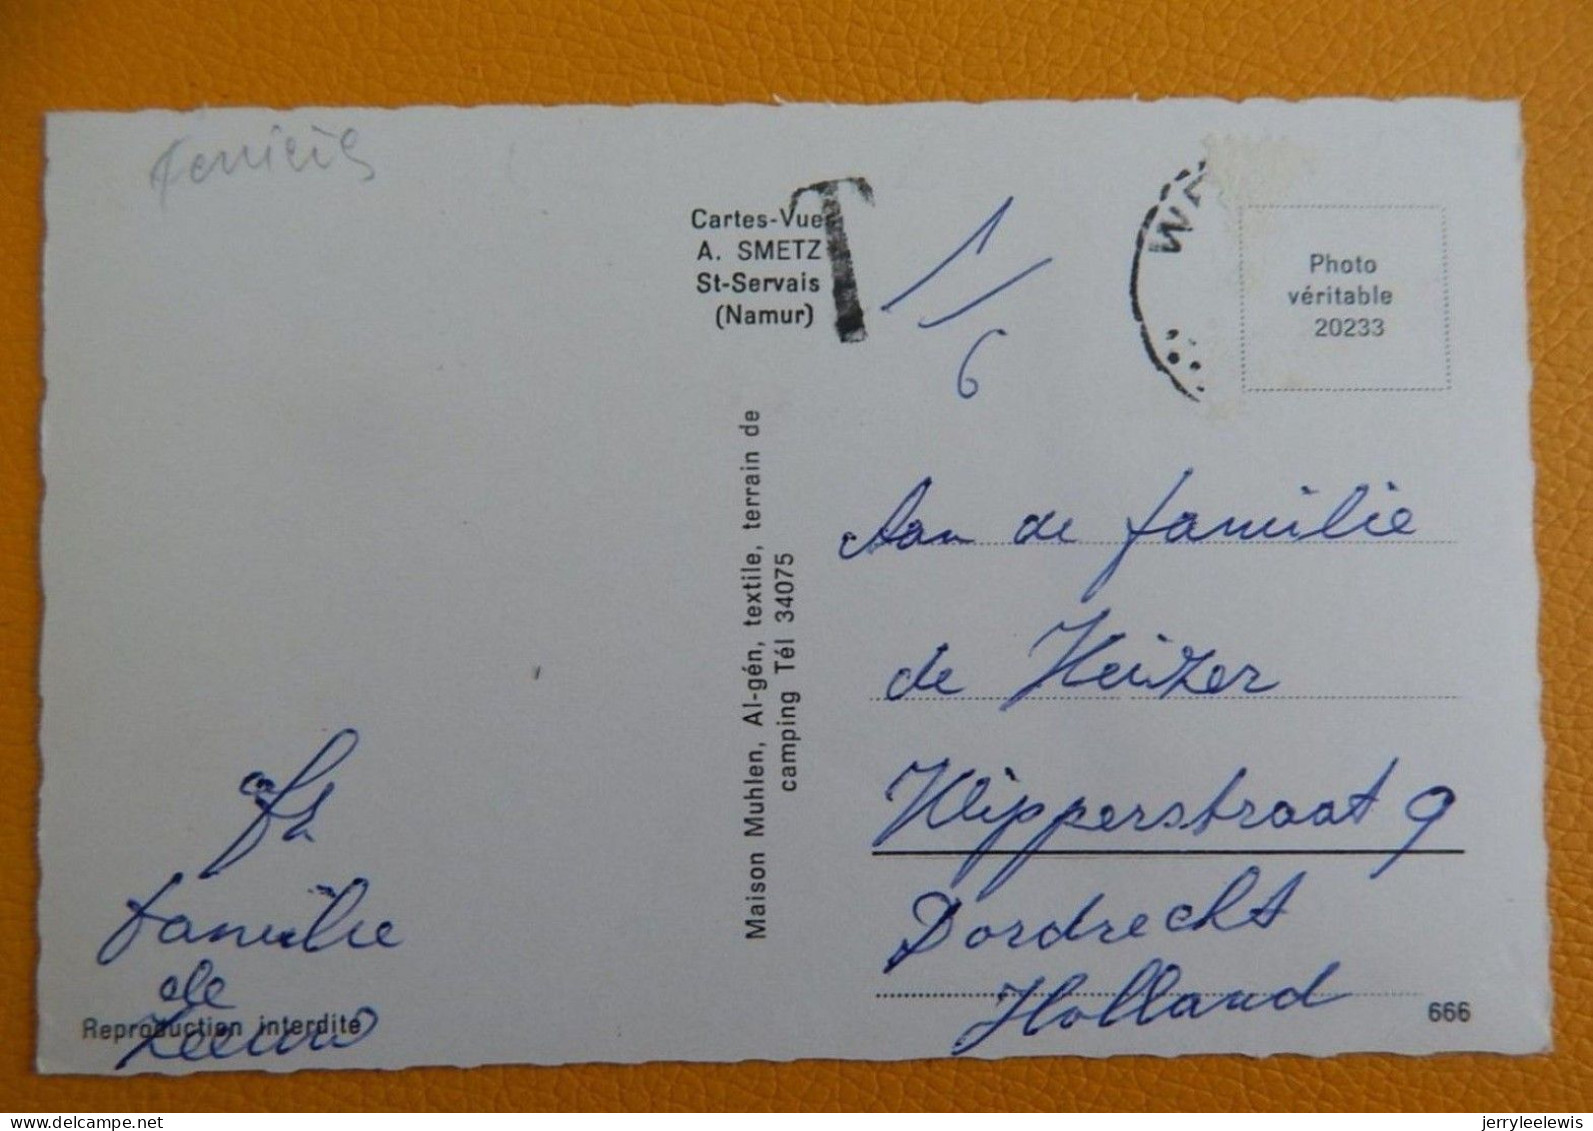 Ferrières
Cartes-Vues
A. SMETZ
St-Servais
(Namur)
T
1/6
Photo
véritable
20233
Maison Muhlen, Al-gén, textile, terrain de
camping Tél 34075
Aan de familie
de Keizer
Klipperstraat 9
Dordrecht
Holland
afz
familie
de
Leeuw
Reproduction interdite
666
delcampe.net
jerryleelewis